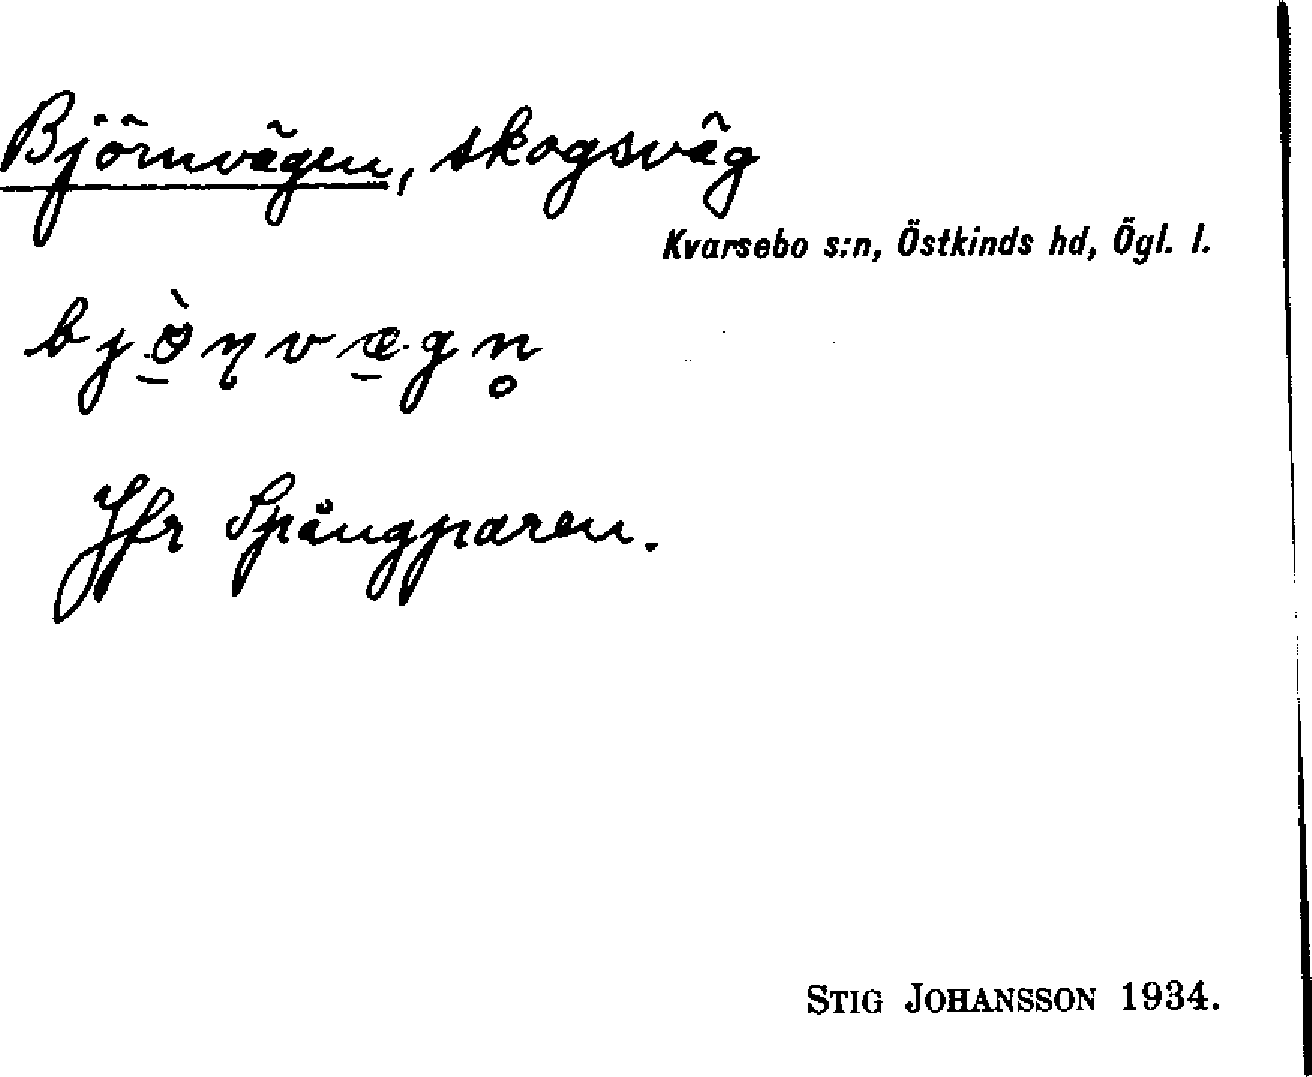 Björnvägen, skogsväg
Kvarsebo s:n, Östkinds hd, Ögl. l.
bjö̀ɳvægn̥
Jfr Spångparen.
STIG JOHANSSON 1934.